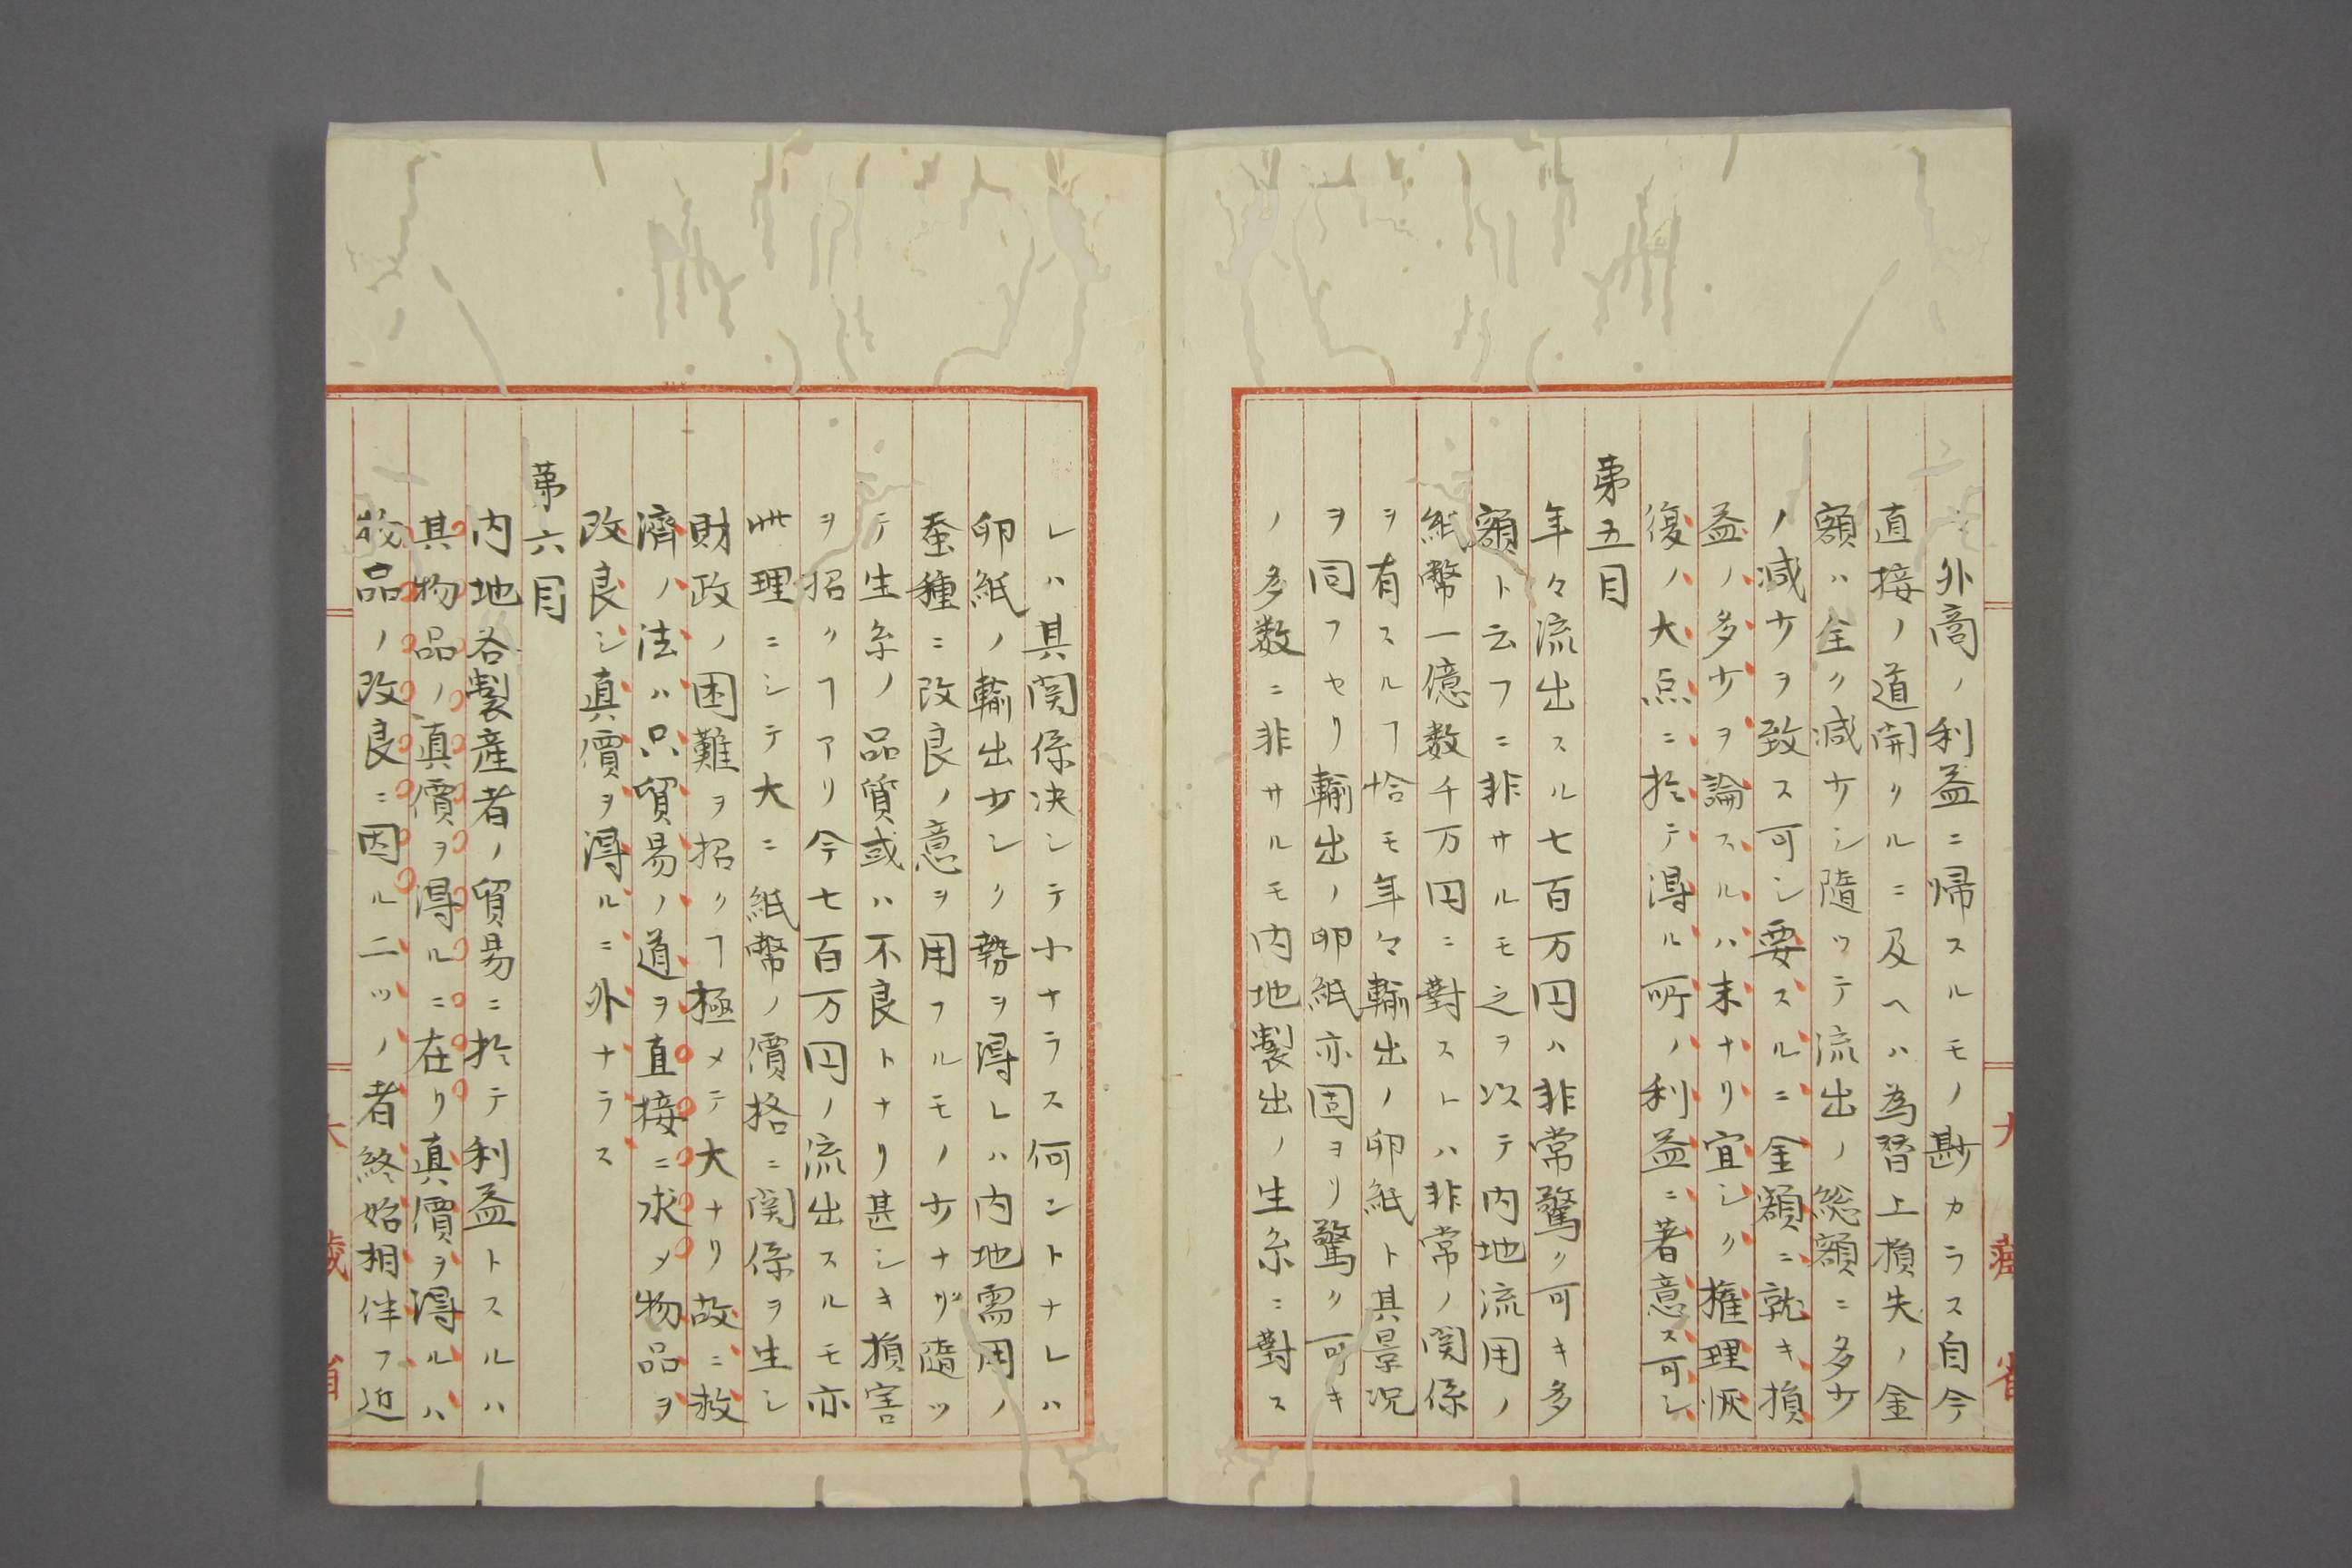 外商ノ利益ニ帰スルモノ尠カラス自今
直接ノ道開クルニ及ヘハ為替上損失ノ金
額ハ全ク減少シ隨ツテ流出ノ総額ニ多少
ノ減少ヲ致ス可シ要スルニ金額ニ就キ損
益ノ多少ヲ論スルハ末ナリ宜シク権理恢
復ノ大点ニ於テ得ル所ノ利益ニ著意ス可シ
第五目
年々流出スル七百万円ハ非常驚ク可キ多
額ト云フニ非サルモ之ヲ以テ内地流用ノ
紙幣一億数千万円ニ對ストハ非常ノ関係
ヲ有スルヿ恰モ年々輸出ノ卵紙ト其景况
ヲ同フセリ輸出ノ卵紙亦固ヨリ驚ク可キ
ノ多数ニ非サルモ内地製出ノ生糸ニ對ス
レハ其関係决シテ小ナラス何ントナレハ
卵紙ノ輸出少シク勢ヲ得レハ内地需用ノ
蚕種ニ改良ノ意ヲ用フルモノ少ナザ隨ツ
テ生糸ノ品質或ハ不良トナリ甚シキ損害
ヲ招クヿアリ今七百万円ノ流出スルモ亦
此理ニシテ大ニ紙幣ノ價格ニ関係ヲ生シ
財政ノ困難ヲ招クヿ極メテ大ナリ故ニ救
濟ノ法ハ只貿易ノ道ヲ直接ニ求メ物品ヲ
改良シ真價ヲ得ルニ外ナラス
第六目
内地各製産者ノ貿易ニ於テ利益トスルハ
其物品ノ真價ヲ得ルニ在リ真價ヲ得ルハ
物品ノ改良ニ因ル二ツノ者終始相伴フ近
大藏省
大藏省